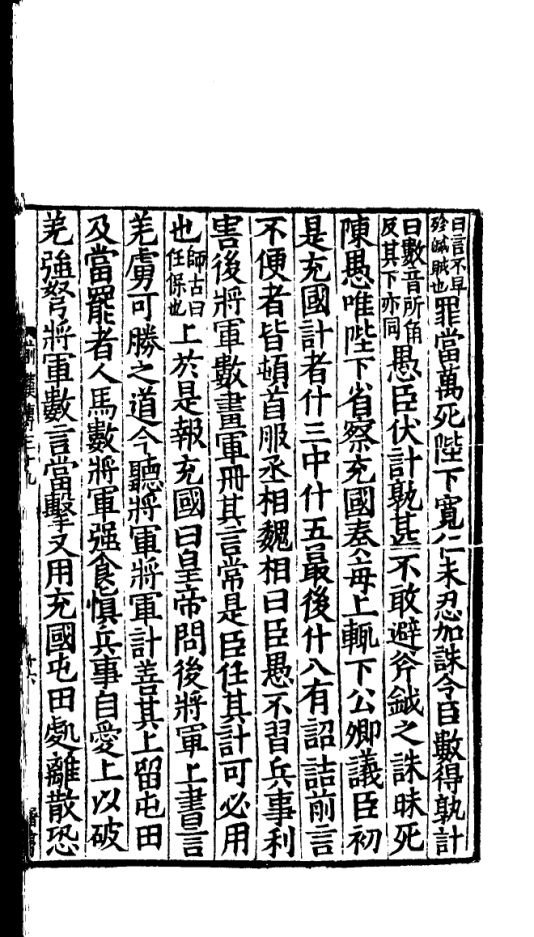 曰言不早
殄滅賊也罪當萬死陛下寬仁未忍加誅令臣數得孰計
曰數音所角
反其下亦同愚臣伏計孰甚不敢避斧鉞之誅昧死
陳愚唯陛下省察充國奏每上輒下公卿議臣初
是充國計者什三中什五最後什八有詔詰前言
不便者皆頓首服丞相魏相曰臣愚不習兵事利
害後將軍數畫軍冊其言常是臣任其計可必用
也師古曰
任保也上於是報充國曰皇帝問後將軍上書言
羌虜可勝之道今聽將軍將軍計善其上留屯田
及當罷者人馬數將軍强食慎兵事自愛上以破
羌強弩將軍數言當擊又用充國屯田處離散恐
前漢傳三十九
十六